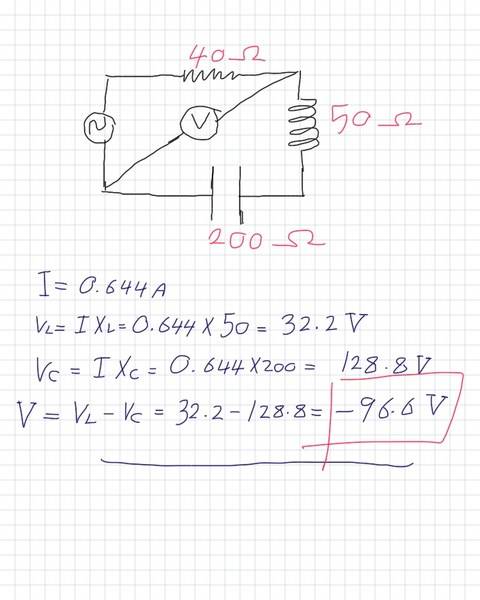 40Ω
V
50Ω
200Ω
I = 0.644 A
VL = I XL = 0.644 × 50 = 32.2 V
VC = I XC = 0.644 × 200 = 128.8 V
V = VL - VC = 32.2 - 128.8 = -96.6 V